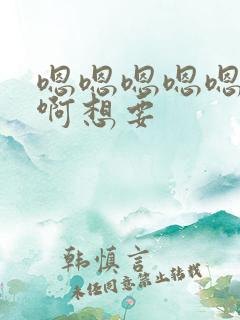 嗯嗯嗯嗯嗯
啊想要
韩慎言
未经同意禁止转载